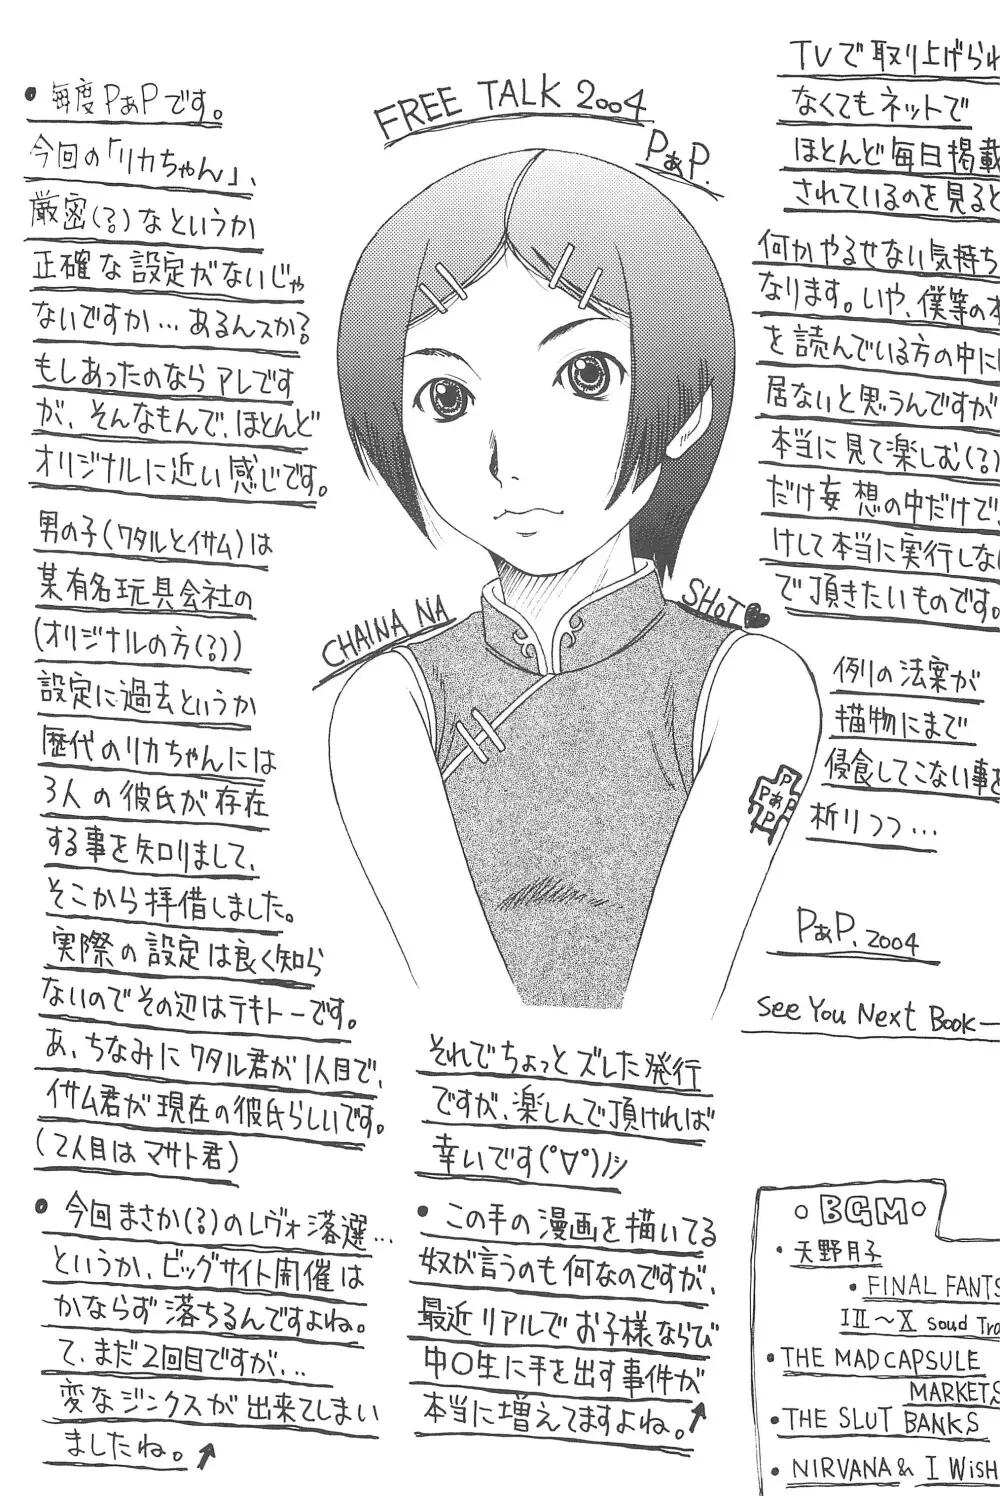 FREE TALK 2004
PぁP.
• 毎度PぁPです。
今回の「リカちゃん」、
厳密(?)なというか
正確な設定がないじゃ
ないですか…あるんスか?
もしあったのなら アレです
が、そんなもんで、ほとんど
オリジナルに近い感じです。
男の子(ワタルとイサム)は
某有名玩具会社の
(オリジナルの方(?))
設定に過去というか
歴代のリカちゃんには
3人の彼氏が存在
する事を知りまして、
そこから拝借しました。
実際の設定は良く知ら
ないのでその辺はテキトーです。
あ、ちなみにワタル君が1人目で、
イサム君が現在の彼氏らしいです。
(2人目はマサト君)
• 今回まさか(?)のレヴォ落選…
というか、ビッグサイト開催は
かならず落ちるんですよね。
て、まだ2回目ですが…
変なジンクスが出来てしまい
ましたね。↗
CHAINA NA
SHoT♥
P
PぁP
P
それでちょっとズレた発行
ですが、楽しんで頂ければ
幸いです(°∀°)ﾉｼ
• この手の漫画を描いてる
奴が言うのも何なのですが、
最近リアルでお子様ならび
中〇生に手を出す事件が
本当に増えてますよね。↗
TVで取り上げられ
なくてもネットで
ほとんど毎日掲載
されているのを見ると
何かやるせない気持ち
なります。いや、僕等の本
を読んでいる方の中に
居ないと思うんですが
本当に見て楽しむ(?)
だけ妄想の中だけで、
けして本当に実行しない
で頂きたいものです。
例の法案が
描物にまで
侵食してこない事を
祈りつつ…
PぁP. 2004
See You Next Book—
○BGM○
• 天野月子
• FINAL FANTS
IIII〜X soud Tra
• THE MAD CAPSULE
MARKETS
• THE SLUT BANKS
• NIRVANA & I WiSH